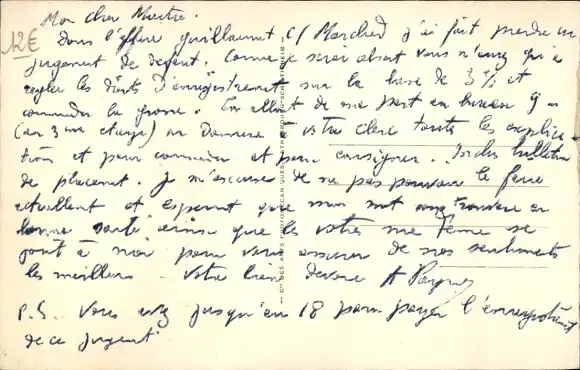 Mon cher Maître.
12€
Dans l'affaire Guillaumet c/ Marchand j'ai fait prendre un
jugement de défaut. Comme je serai absent vous n'aurez qu'à
régler les droits d'enregistrement sur la base de 3% et
commander la grosse. En allant de ma part au bureau
(au 3me étage) on donnera à votre clerc toutes les explica-
tions et pour commander et pour consigner.
de placement. Je m'excuse de ne pas pouvoir le faire
actuellement et espérant que mon mot vous trouvera en
bonne santé ainsi que les vôtres ma femme se
joint à moi pour vous assurer de nos sentiments
les meilleurs. Votre bien dévoué A
P.S. Vous avez jusqu'au 18 pour payer l'enregistrement
de ce jugement